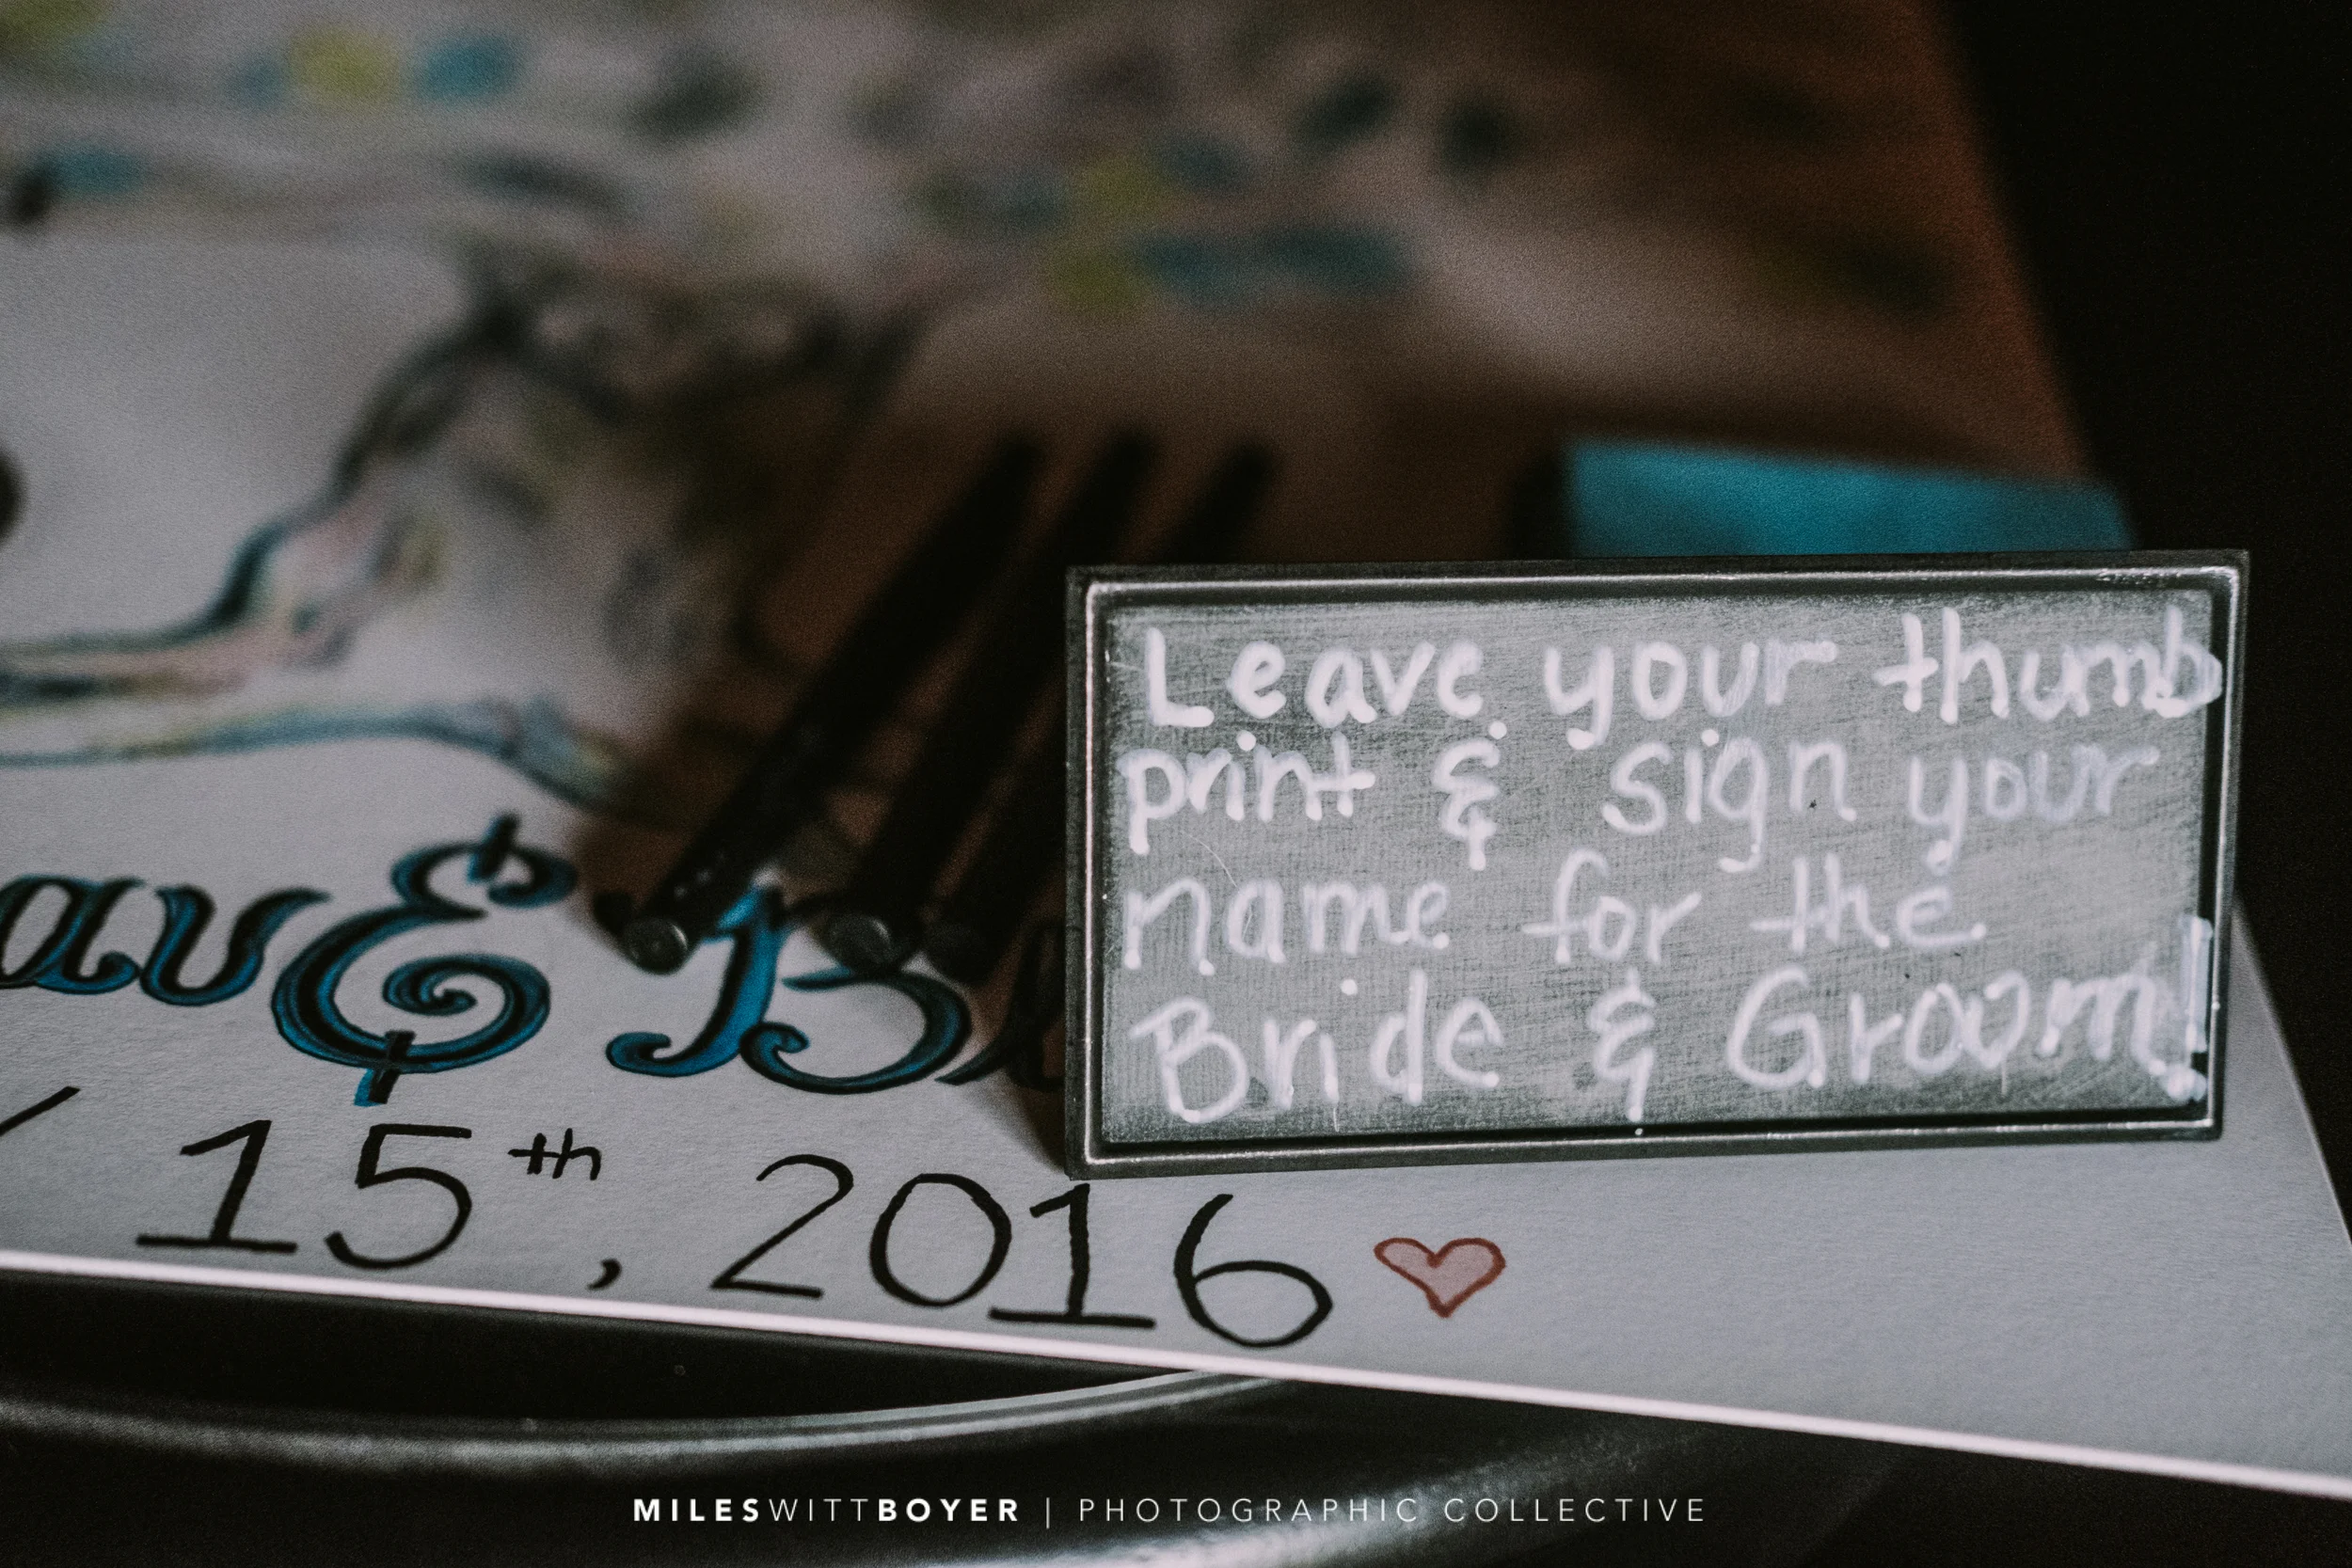 Leave your thumb
print & sign your
name for the
Bride & Groom!
&
15th, 2016
MILESWITTBOYER | PHOTOGRAPHIC COLLECTIVE